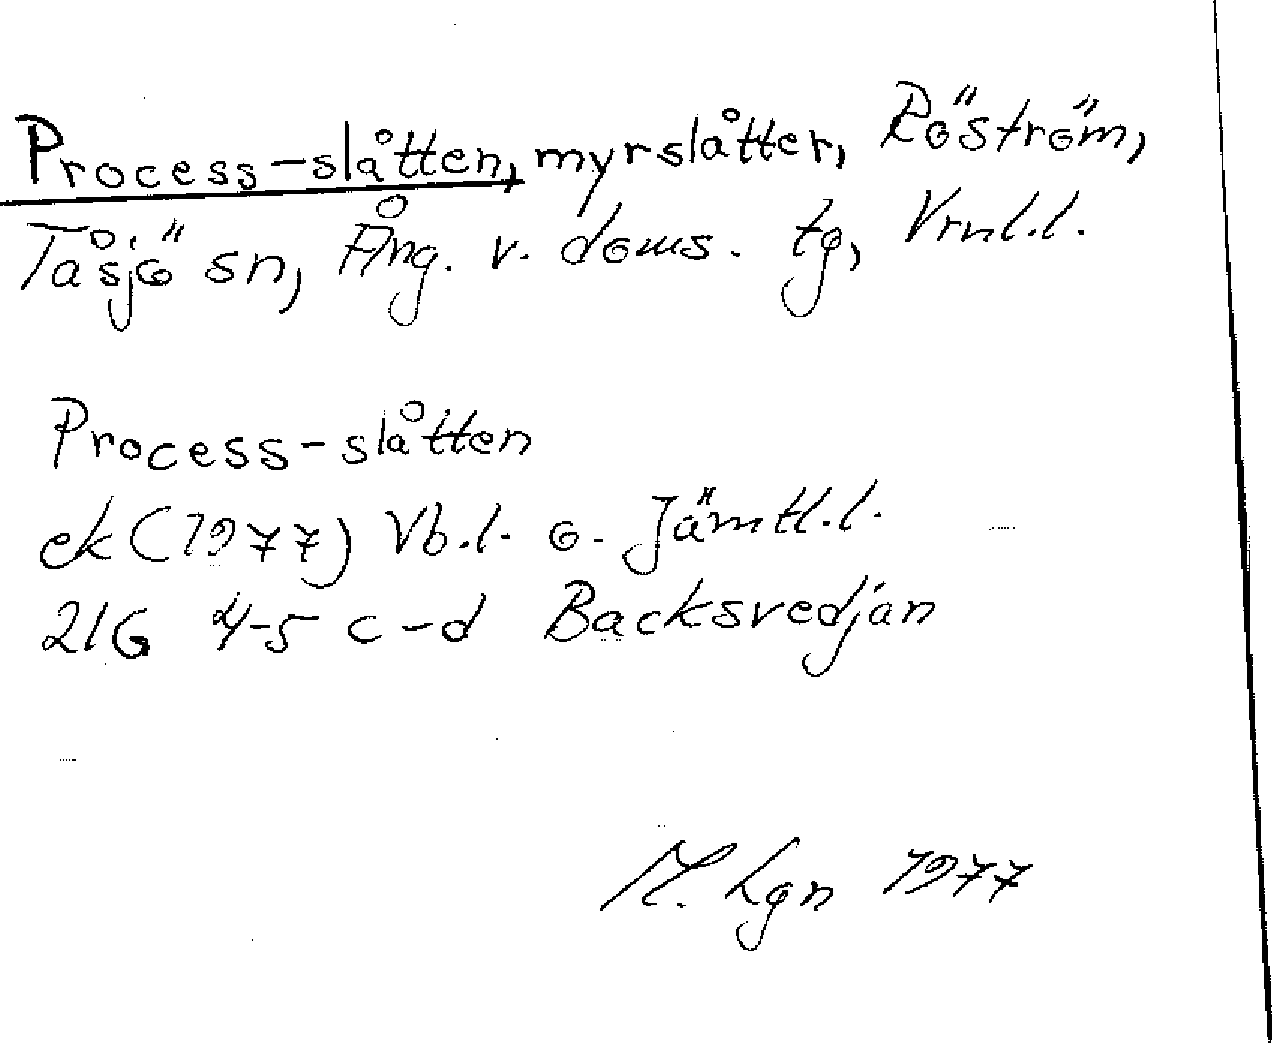 Process-slåtten, myrslåtter, Röström,
Tåsjö sn, Ång. v. doms. tg, Vrnl.l.
Process-slåtten
ek (1977) Vb.l. o. Jämtl.l.
21G 4-5 c-d Backsvedjan
M. Lgn 1977